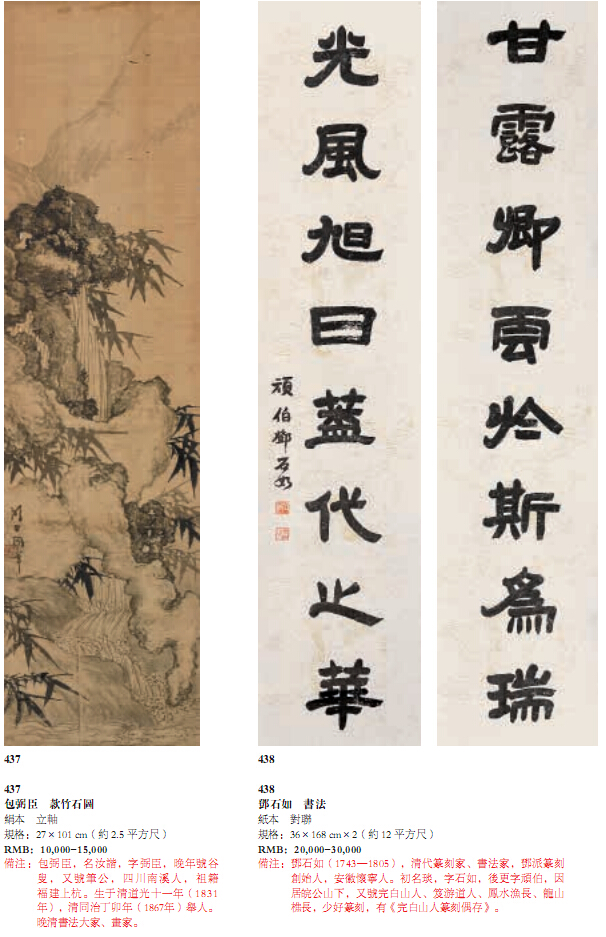 甘露卿雲於斯爲瑞
光風旭日蓋代之華
頑伯鄧石如
437
437
包弼臣 款竹石圖
絹本 立軸
規格：27×101 cm（約 2.5 平方尺）
RMB：10,000-15,000
備注：包弼臣，名汝諧，字弼臣，晚年號谷
叟，又號筆公，四川南溪人，祖籍
福建上杭。生于清道光十一年（1831
年），清同治丁卯年（1867年）舉人。
晚清書法大家、畫家。
438
438
鄧石如 書法
紙本 對聯
規格：36×168 cm×2（約 12 平方尺）
RMB：20,000-30,000
備注：鄧石如（1743—1805），清代篆刻家、書法家，鄧派篆刻
創始人，安徽懷寧人。初名琰，字石如，後更字頑伯，因
居皖公山下，又號完白山人、笈游道人、鳳水漁長、龍山
樵長，少好篆刻，有《完白山人篆刻偶存》。